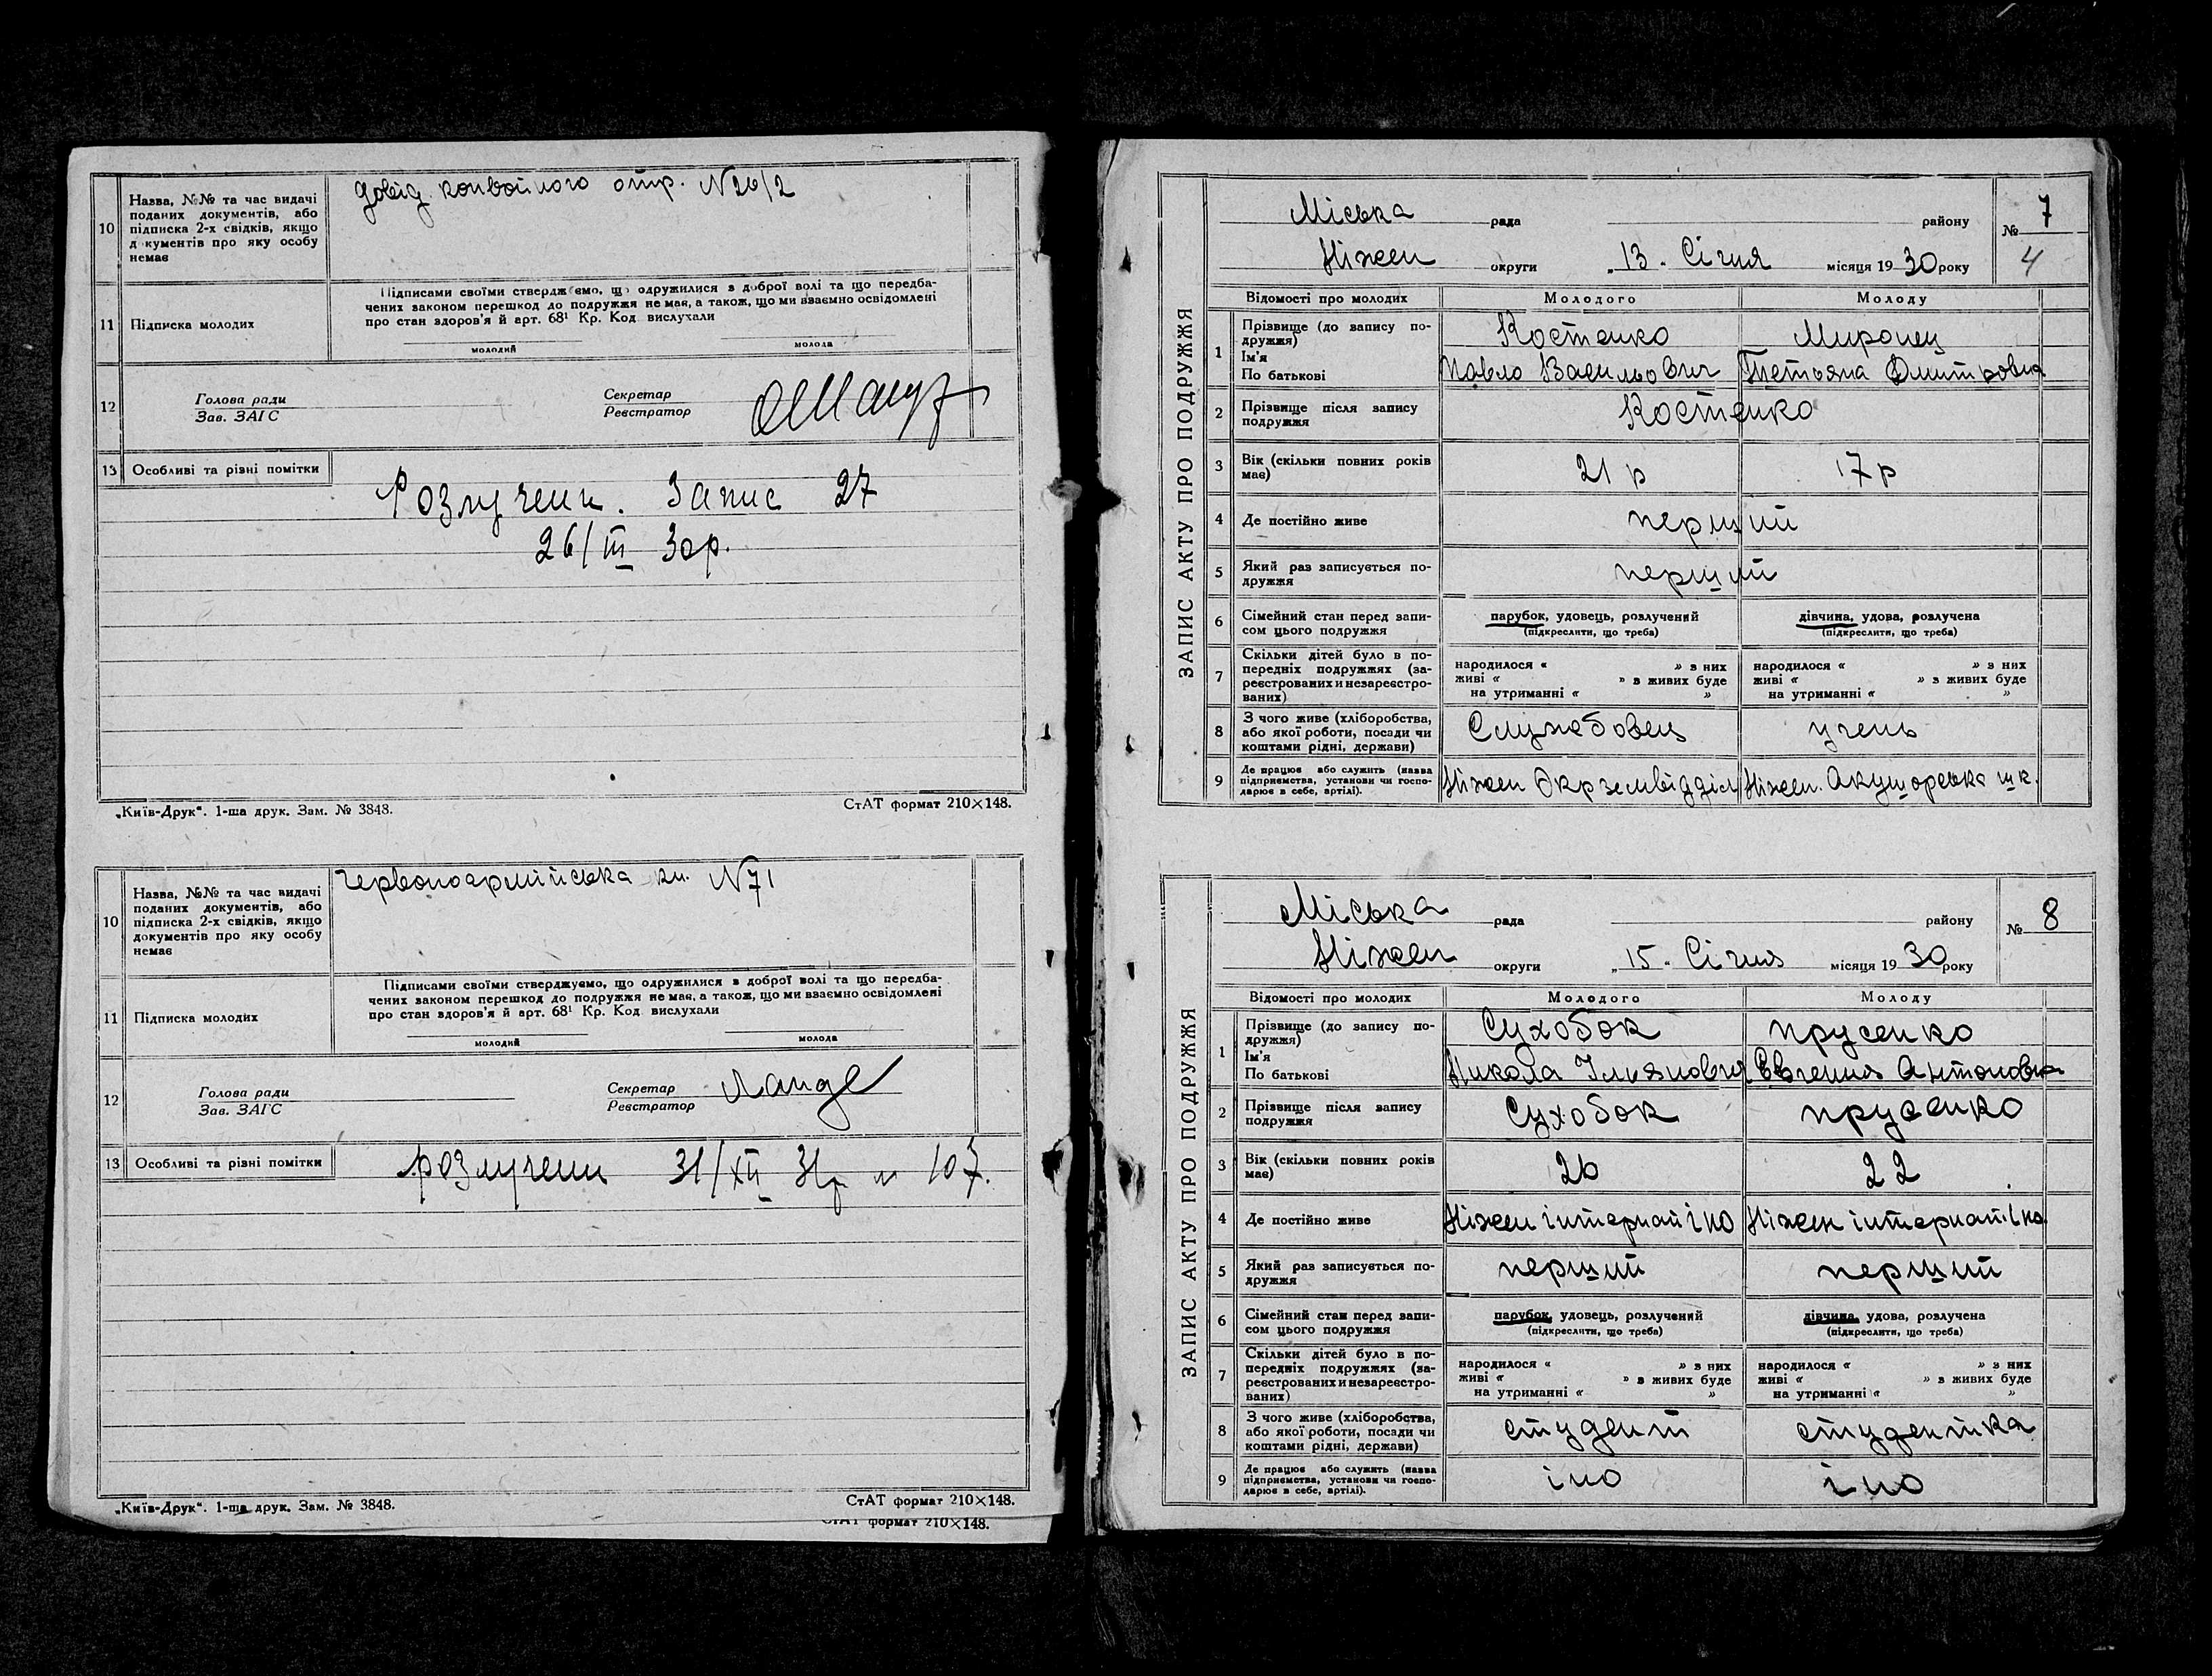 10
Назва, №№ та час видачі
поданих документів, або
підписка 2-х свідків, якщо
д кументів про яку особу
немає
довід. конвойного отр. N 26/2
11
Підписка молодих
Підписами своїми стверджуємо, що одружилися з доброї волі та що передба-
чених законом перешкод до подружжя не має, а також, що ми взаємно освідомлені
про стан здоров'я й арт. 68¹ Кр. Код вислухали
молодий
молода
12
Голова ради
Зав. ЗАГС
Секретар
Реєстратор
13
Особливі та різні помітки
Розлучени. Запис 27
26/III 30р.
„Київ-Друк“. 1-ша друк. Зам. № 3848.
СтАТ формат 210×148.
10
Назва, №№ та час видачі
поданих документів, або
підписка 2-х свідків, якщо
документів про яку особу
немає
Червоноармійська кн. N 71
11
Підписка молодих
Підписами своїми стверджуємо, що одружилися з доброї волі та що передба-
чених законом перешкод до подружжя не має, а також, що ми взаємно освідомлені
про стан здоров'я й арт. 68¹ Кр. Код вислухали
молодий
молода
12
Голова ради
Зав. ЗАГС
Секретар
Реєстратор
Ланде
13
Особливі та різні помітки
розлучени 31/XII 31р № 107.
„Київ-Друк“. 1-ша друк. Зам. № 3848.
СтАТ формат 210×148.
СтАТ формат 210×148.
ЗАПИС АКТУ ПРО ПОДРУЖЖЯ
Міська рада району
№ 7
Ніжен округи „13“ Січня місяця 1930 року
4
Відомості про молодих Молодого Молоду
1
Прізвище (до запису по-
дружжя)
Ім'я
По батькові
Костенко Миронец
Павло Васильович Тетьяна Дмитровна
2
Прізвище після запису
подружжя
Костенко
3
Вік (скільки повних років
має)
21 р 17 р
4
Де постійно живе
перший
5
Який раз записується по-
дружжя
перший
6
Сімейний стан перед запи-
сом цього подружжя
парубок, удовець, розлучений
(підкреслити, що треба)
дівчина, удова, розлучена
(підкреслити, що треба)
7
Скільки дітей було в по-
передніх подружжях (за-
реєстрованих и незареєстро-
ваних)
народилося « » з них
живі « » з живих буде
на утриманні « »
народилося « » з них
живі « » з живих буде
на утриманні « »
8
З чого живе (хліборобства,
або якої роботи, посади чи
коштами рідні, держави)
Службовець учень
9
Де працює або служить (назва
підприємства, установи чи госпо-
дарює в себе, артілі).
Ніжен Окрземвідділ Ніжен. Акушорська шк.
ЗАПИС АКТУ ПРО ПОДРУЖЖЯ
Міська рада району
№ 8
Ніжен округи „15“ Січня місяця 1930 року
Відомості про молодих Молодого Молоду
1
Прізвище (до запису по-
дружжя)
Ім'я
По батькові
Сухобок Прусенко
Микола Ілияновіч Євгения Антоновна
2
Прізвище після запису
подружжя
Сухобок Прусенко
3
Вік (скільки повних років
має)
26 22
4
Де постійно живе
Ніжен інтернат іно Ніжен інтернат. іно
5
Який раз записується по-
дружжя
перший перший
6
Сімейний стан перед запи-
сом цього подружжя
парубок, удовець, розлучений
(підкреслити, що треба)
дівчина, удова, розлучена
(підкреслити, що треба)
7
Скільки дітей було в по-
передніх подружжях (за-
реєстрованих и незареєстро-
ваних)
народилося « » з них
живі « » з живих буде
на утриманні « »
народилося « » з них
живі « » з живих буде
на утриманні « »
8
З чого живе (хліборобства,
або якої роботи, посади чи
коштами рідні, держави)
студент студентка
9
Де працює або служить (назва
підприємства, установи чи госпо-
дарює в себе, артілі).
іно іно